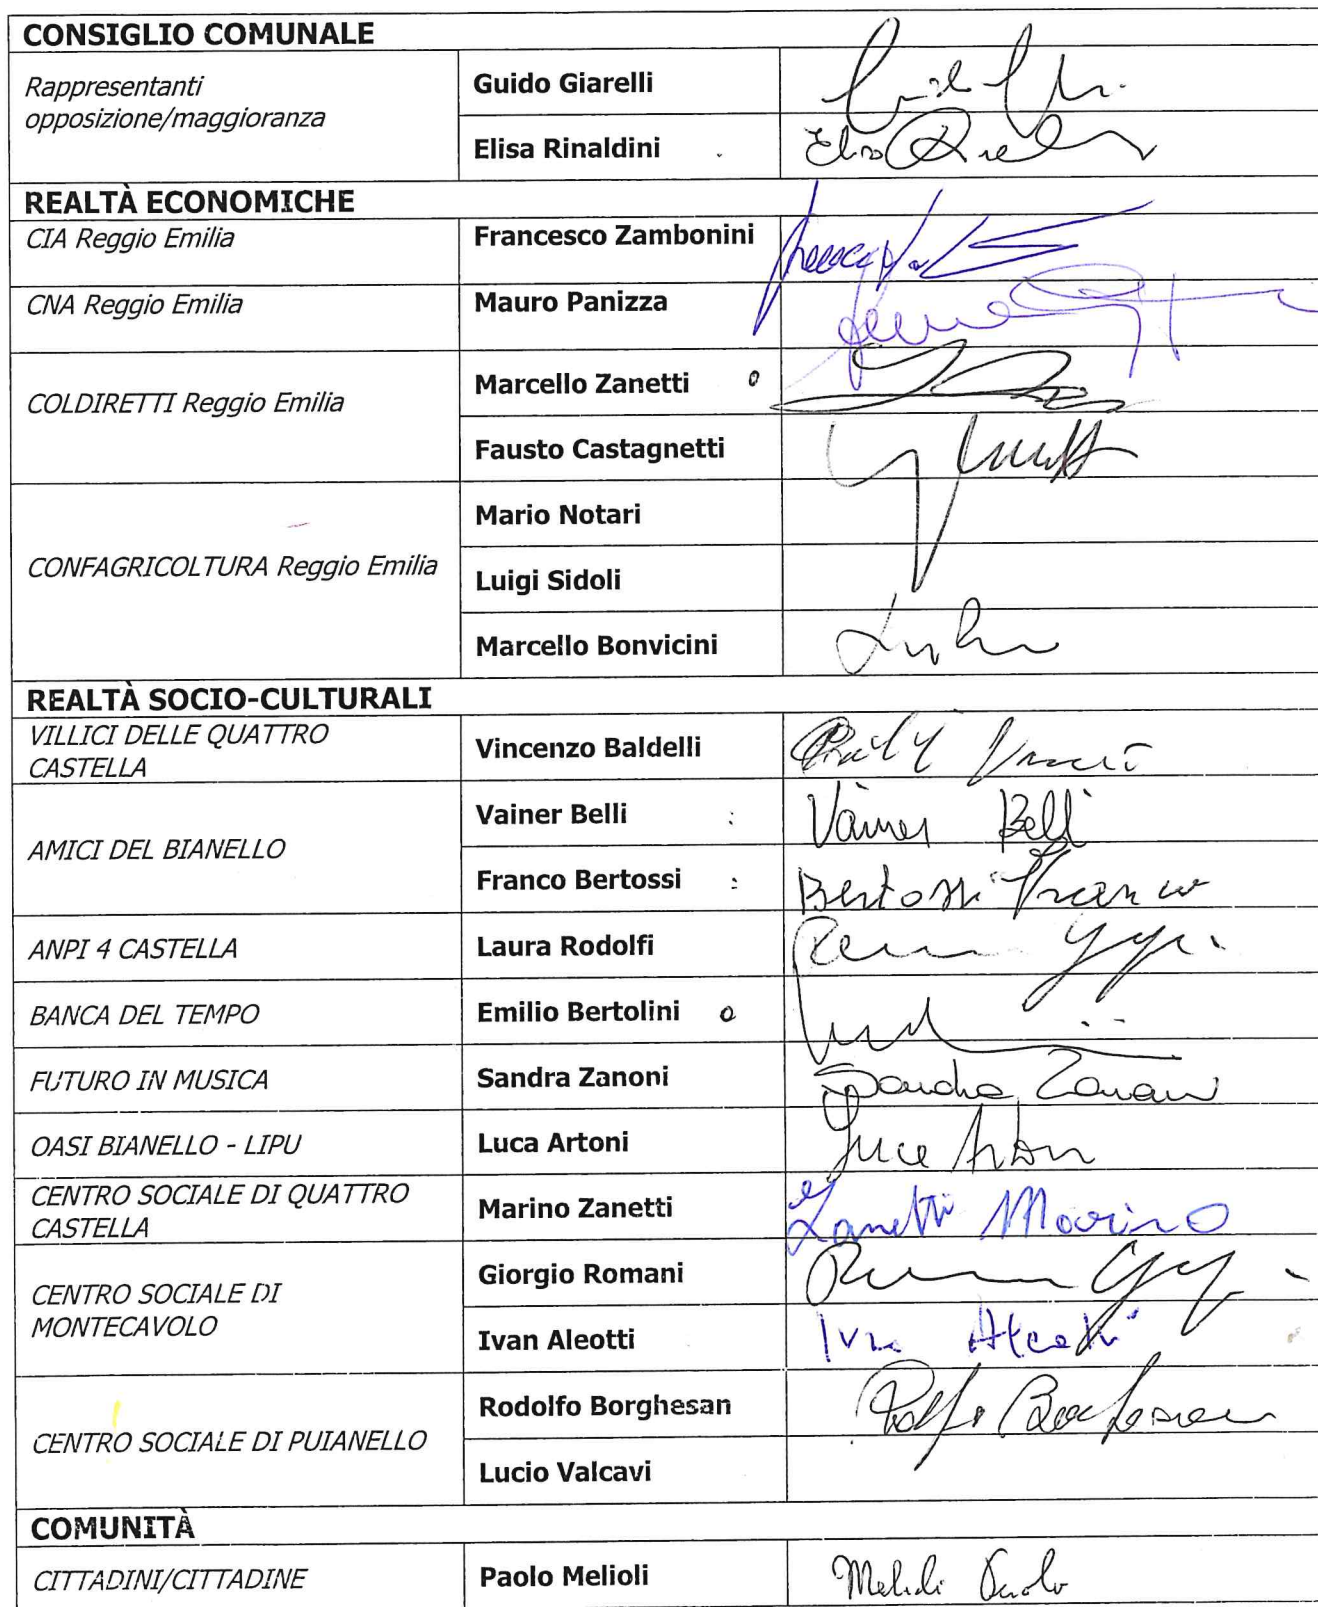 CONSIGLIO COMUNALE
Rappresentanti
opposizione/maggioranza
Guido Giarelli
Elisa Rinaldini
Elisa
REALTÀ ECONOMICHE
CIA Reggio Emilia
Francesco Zambonini
CNA Reggio Emilia
Mauro Panizza
COLDIRETTI Reggio Emilia
Marcello Zanetti
Fausto Castagnetti
CONFAGRICOLTURA Reggio Emilia
Mario Notari
Luigi Sidoli
Marcello Bonvicini
REALTÀ SOCIO-CULTURALI
VILLICI DELLE QUATTRO
CASTELLA
Vincenzo Baldelli
AMICI DEL BIANELLO
Vainer Belli
Vainer Belli
Franco Bertossi
Bertossi Franco
ANPI 4 CASTELLA
Laura Rodolfi
BANCA DEL TEMPO
Emilio Bertolini
FUTURO IN MUSICA
Sandra Zanoni
Sandra Zanoni
OASI BIANELLO - LIPU
Luca Artoni
Luca Artoni
CENTRO SOCIALE DI QUATTRO
CASTELLA
Marino Zanetti
Zanetti Marino
CENTRO SOCIALE DI
MONTECAVOLO
Giorgio Romani
Ivan Aleotti
Ivan Aleotti
CENTRO SOCIALE DI PUIANELLO
Rodolfo Borghesan
Rodolfo Borghesan
Lucio Valcavi
COMUNITÀ
CITTADINI/CITTADINE
Paolo Melioli
Melioli Paolo